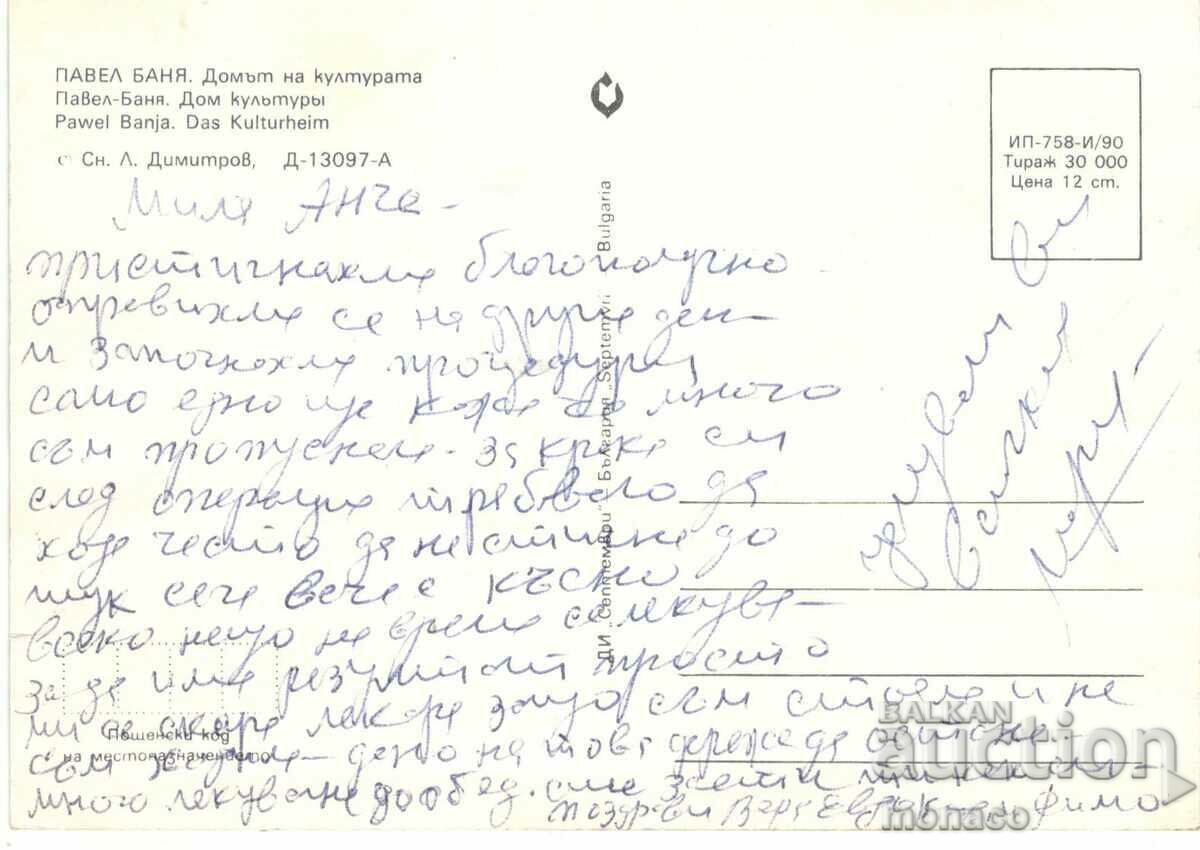 ПАВЕЛ БАНЯ. Домът на културата
Павел-Баня. Дом культуры
Pawel Banja. Das Kulturheim
Сн. Л. Димитров, Д-13097-А
ИП-758-И/90
Тираж 30 000
Цена 12 ст.
ДИ „Септември" България „Septemvri" Bulgaria
Мила Анче -
пристигнахме благополучно
се на другия ден
и започнахме процедури
само едно ще кажа че много
съм пропуснал - за крака си
след операция требвало да
ходе често да не стигне до
тук сега вече е късно
всеко нещо на време се лекува -
за да има резултат просто
ми се лекаре защо съм стояла и не
съм - дано на това дереже да остане -
много лекуване до обед. сме заети
поздрави Вера
целувам Ви
всички
Пощенски код
на местоназначението
BALKAN
auction
monaco